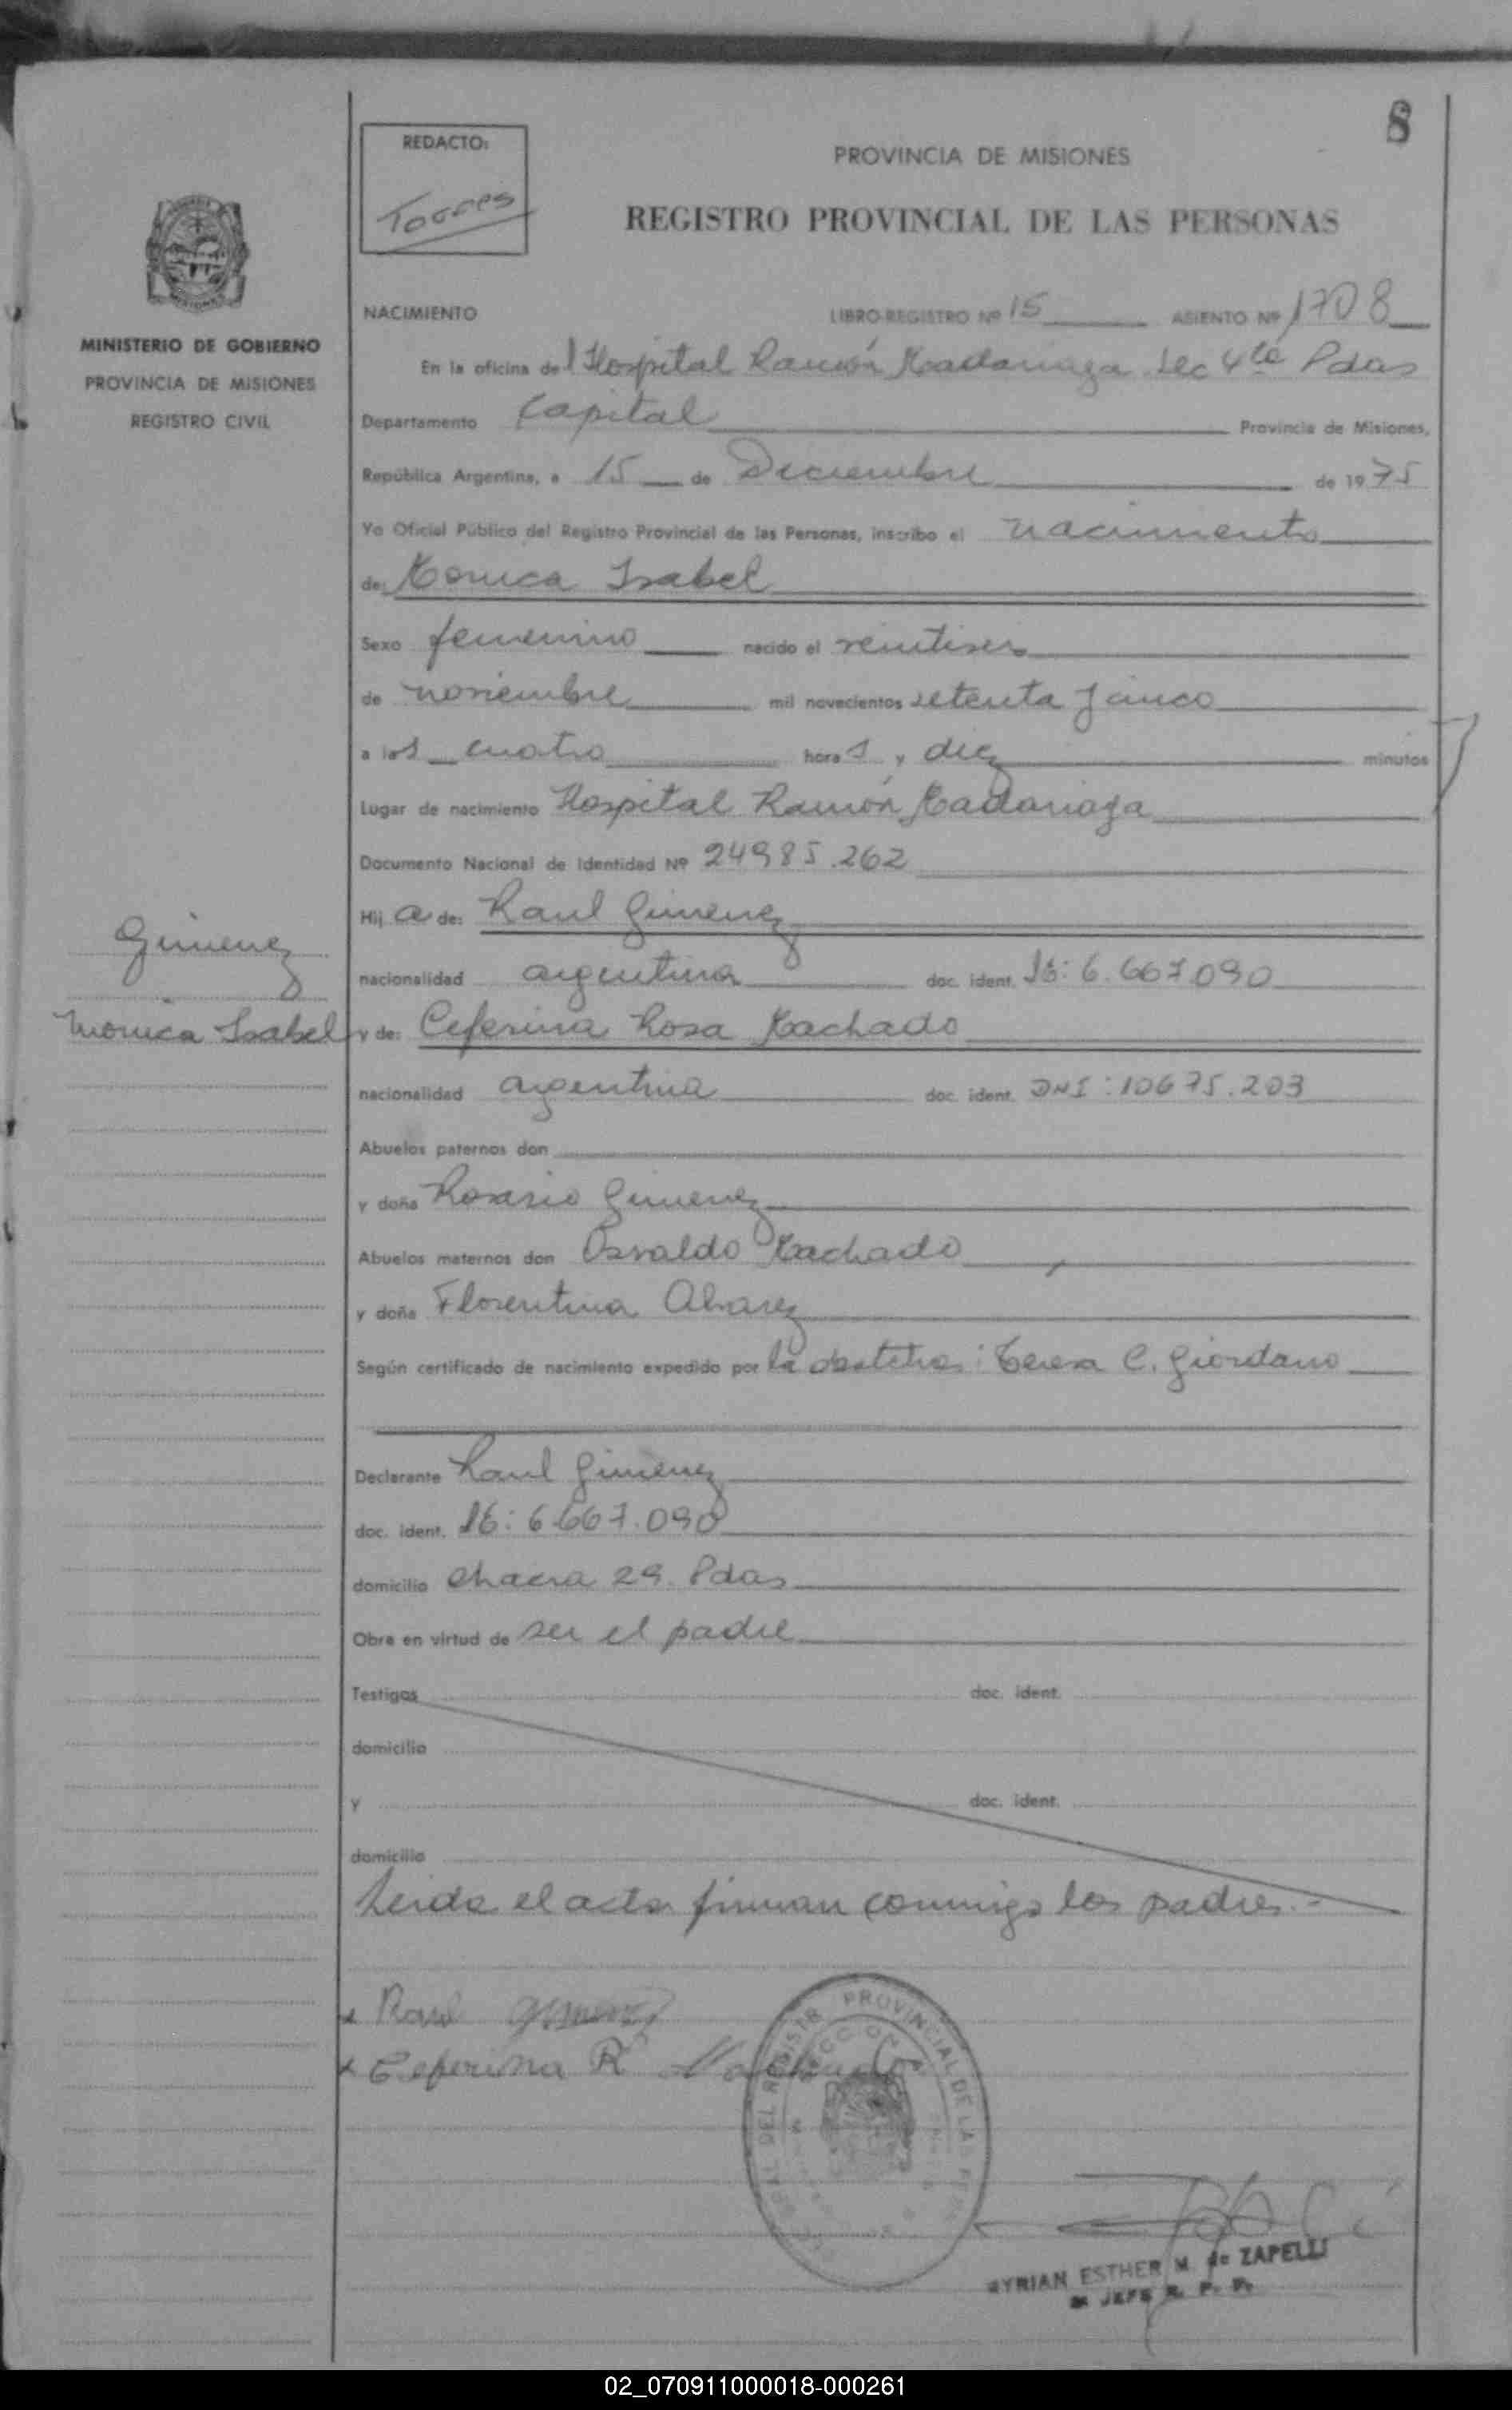 8
REDACTO:
Torres
PROVINCIA DE MISIONES
REGISTRO PROVINCIAL DE LAS PERSONAS
MINISTERIO DE GOBIERNO
PROVINCIA DE MISIONES
REGISTRO CIVIL
NACIMIENTO LIBRO-REGISTRO Nº 15 ASIENTO Nº 1708
En la oficina del Hospital Ramón Madariaga Sec 4ta Pdas
Departamento Capital Provincia de Misiones,
República Argentina, a 15 de Diciembre de 1975
Yo Oficial Público del Registro Provincial de las Personas, inscribo el nacimiento
de: Monica Isabel
Sexo femenino nacido el veintiseis
de noviembre mil novecientos setenta y cinco
a las cuatro horas y diez minutos
Lugar de nacimiento Hospital Ramón Madariaga
Documento Nacional de Identidad Nº 24985.262
Hija de: Raul Gimenez
nacionalidad argentina doc. ident. 6.667.090
Gimenez
Monica Isabel
y de: Ceferina Rosa Machado
nacionalidad argentina doc. ident. DNI: 10675.203
Abuelos paternos don
y doña Rosario Gimenez
Abuelos maternos don Osvaldo Machado
y doña Florentina Alvarez
Según certificado de nacimiento expedido por la obstetra: Teresa C. Giordano
Declarante Raul Gimenez
doc. ident. 6.667.090
domicilio Chacra 29. Pdas
Obra en virtud de ser el padre
Testigos doc. ident.
domicilio
y doc. ident.
domicilio
Leida el acta firman conmigo los padres.-
x Raul Gimenez
x Ceferina R Machado
PROVINCIAL DE LAS
DEL REGISTR
MYRIAN ESTHER M. de ZAPELLI
JEFE R. P. P.
02_070911000018-000261